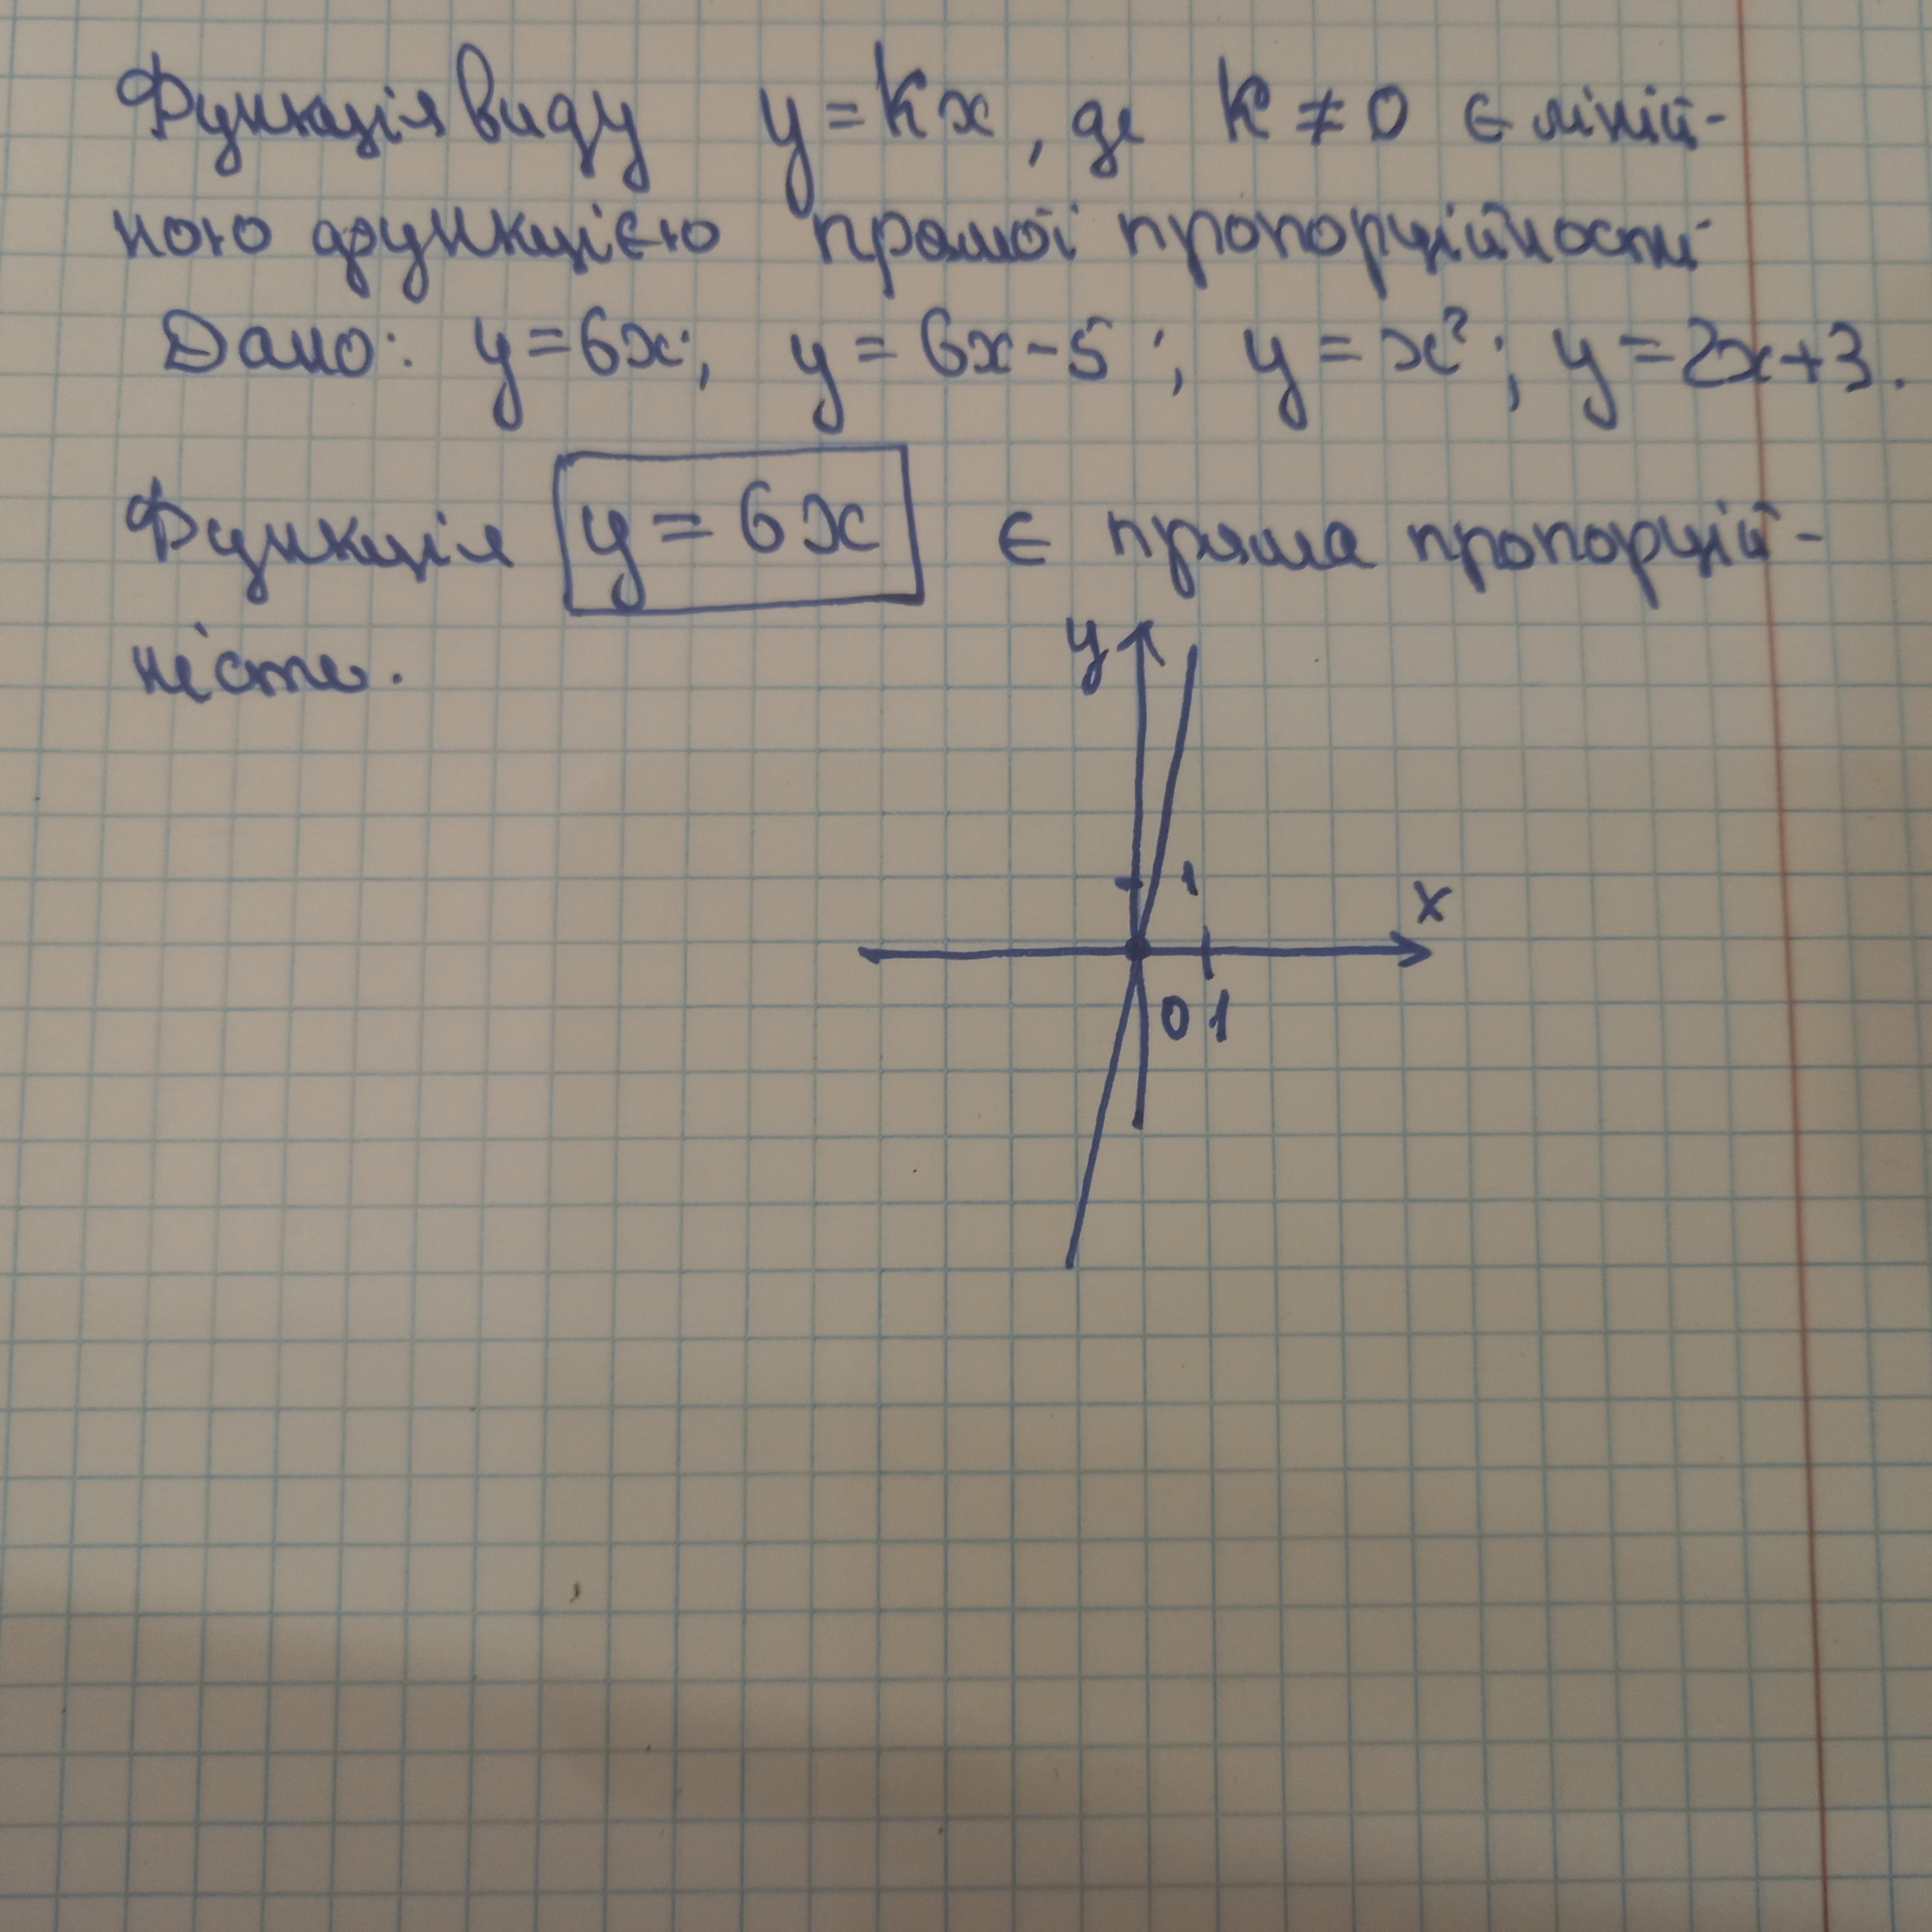 Функція виду y = kx, де k ≠ 0 є ліній-
ною функцією прямої пропорційності
Дано: y = 6x; y = 6x - 5; y = x²; y = 2x + 3.
Функція y = 6x є пряма пропорцій-
ність.
y
1
x
0 1